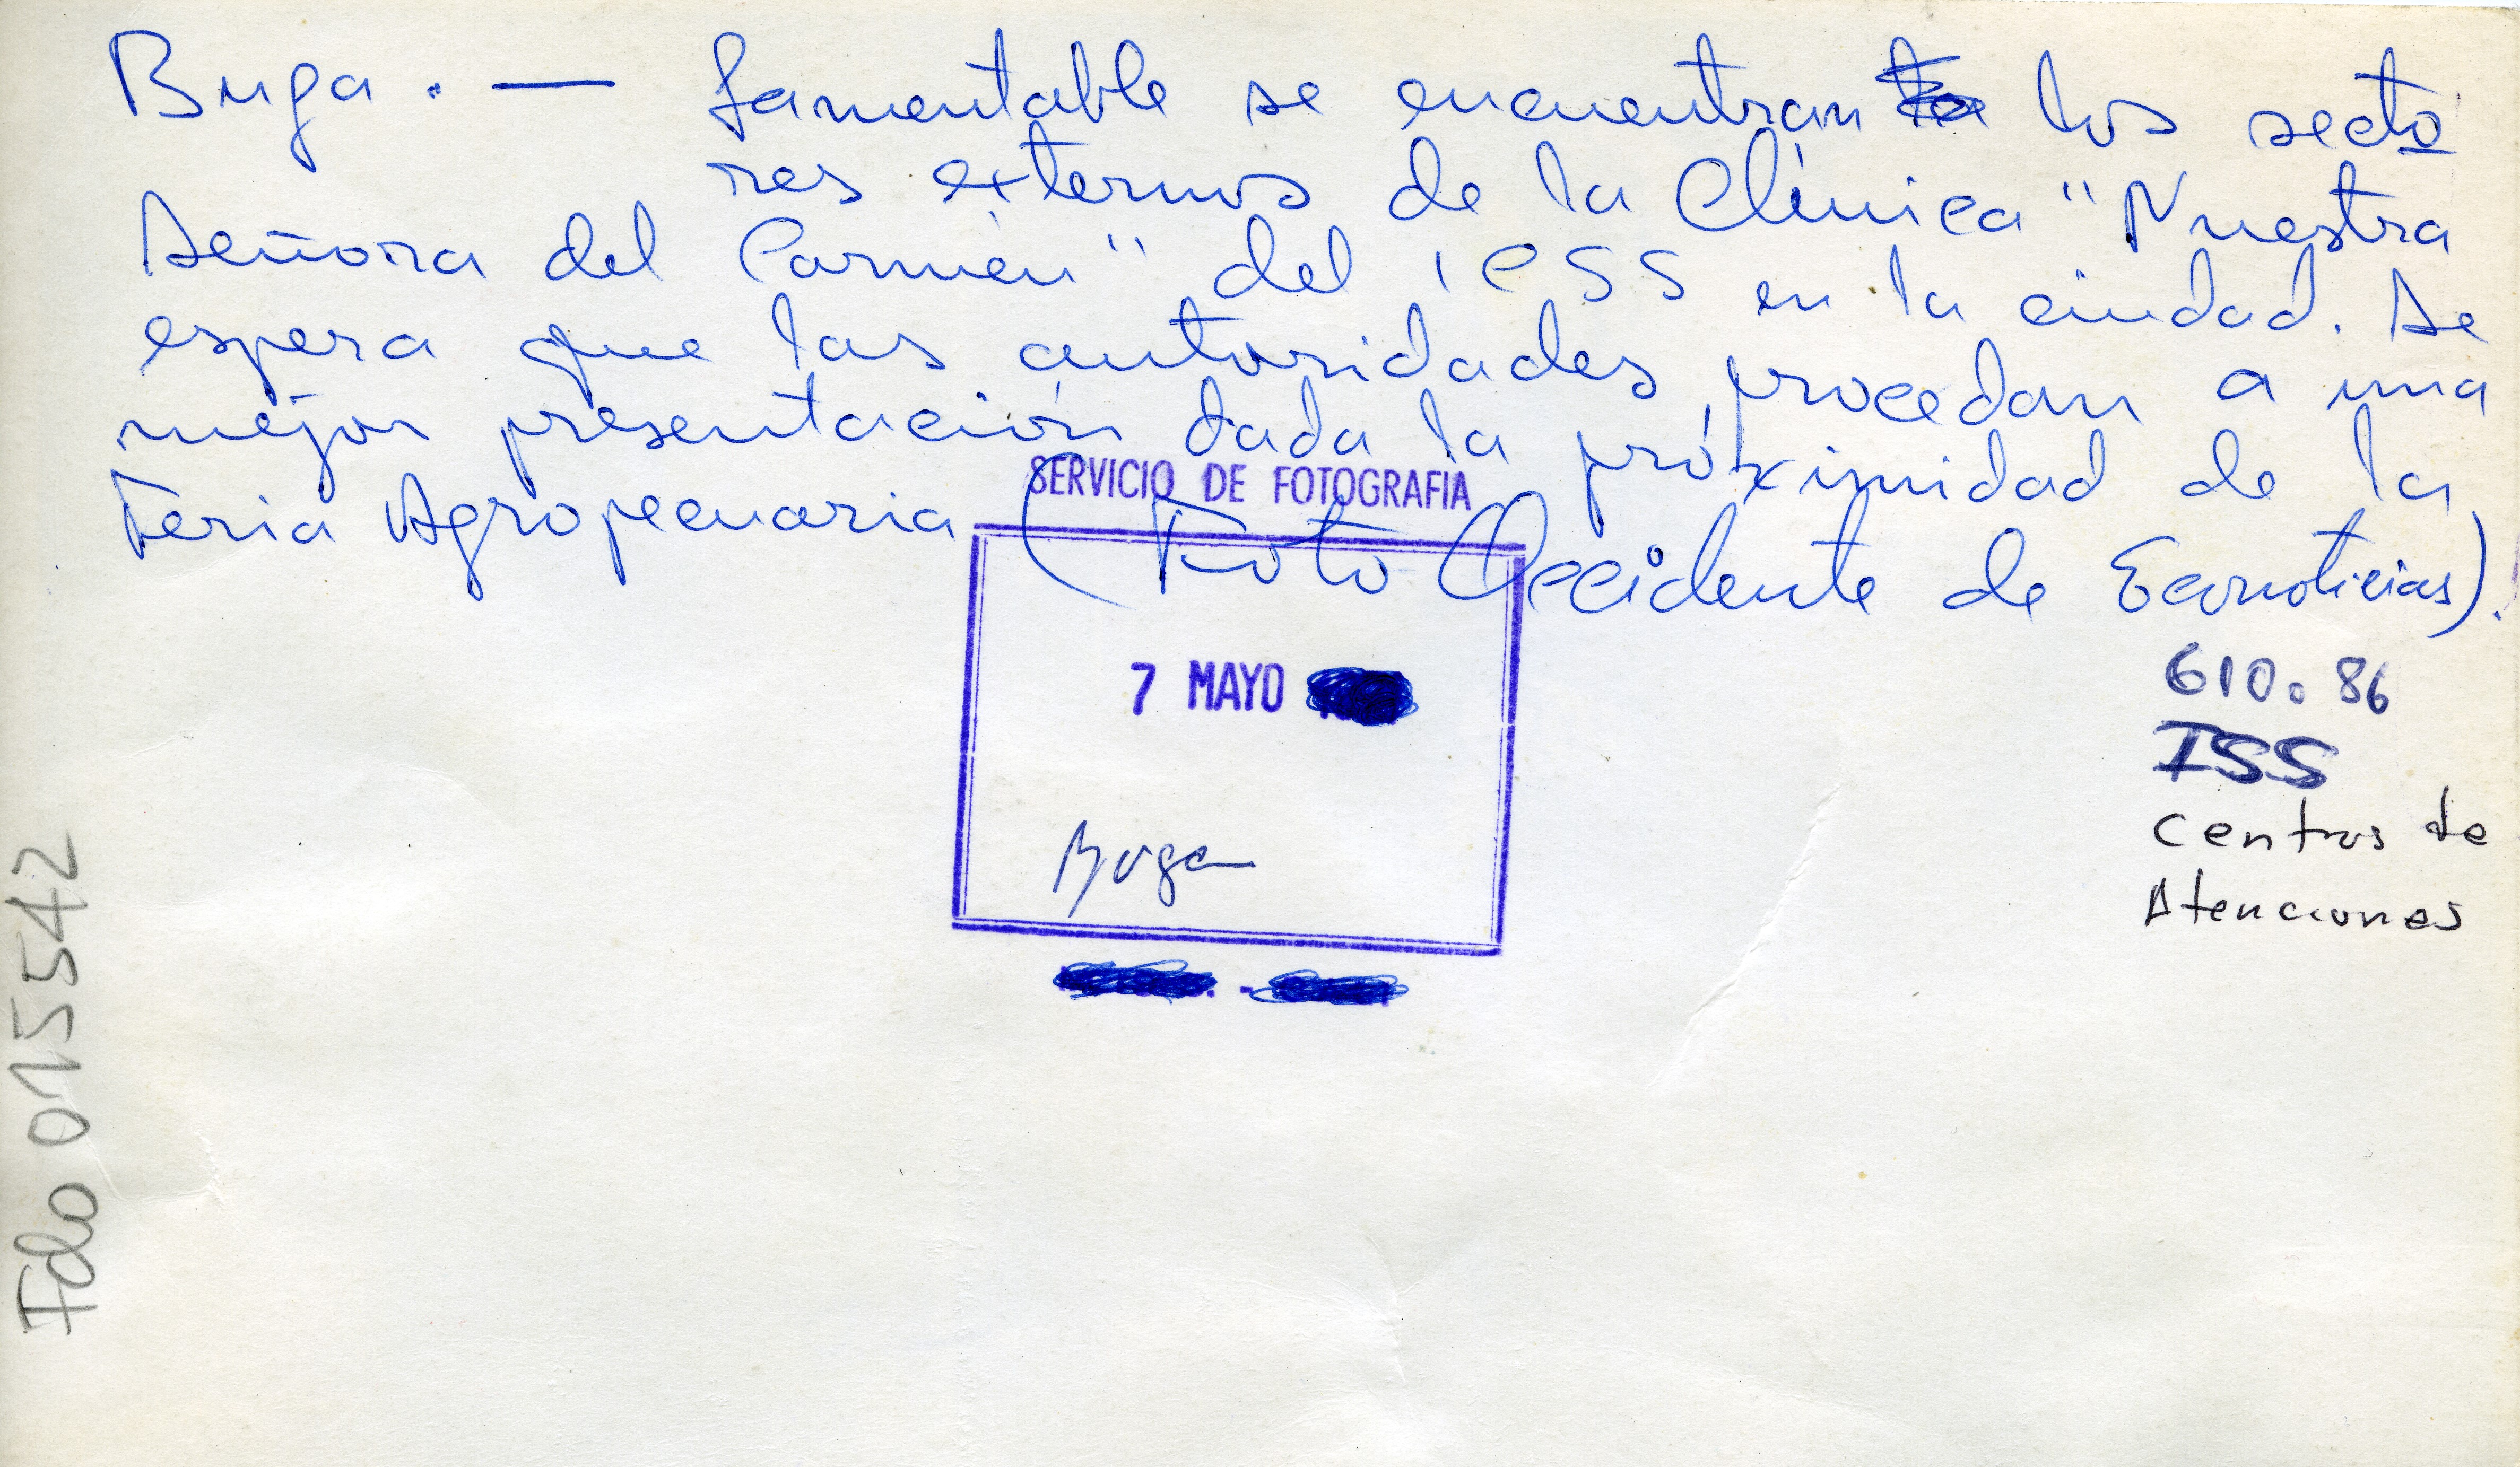 Buga. — Lamentable se encuentran los secto
res externos de la Clínica "Nuestra
Señora del Carmen" del ICSS en la ciudad. Se
espera que las autoridades procedan a una
mejor presentación dada la próximidad de la
Feria Agropecuaria (Foto Occidente de Econoticias).
SERVICIO DE FOTOGRAFIA
7 MAYO
Buga
610.86
ISS
Centros de
Atenciones
Fdo 015542